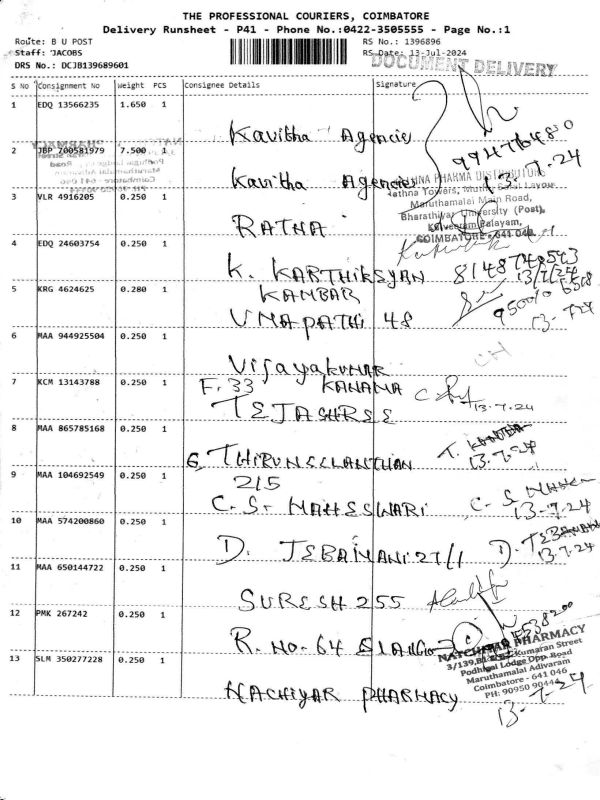 THE PROFESSIONAL COURIERS, COIMBATORE
Delivery Runsheet - P41 - Phone No.:0422-3505555 - Page No.:1
Route: B U POST
RS No.: 1396896
Staff: 'JACOBS
RS Date: 13-Jul-2024
DRS No.: DCJB139689601
DOCUMENT DELIVERY
S No Consignment No Weight PCS Consignee Details Signature
1 EDQ 13566235 1.650 1
Kavitha Agencie
2 JBP 700581979 7.500 1
13.7.24
Kavitha Agencie
PHARMA DISTRIBUTORS
Maruthamalai Main Road,
Bharathiyar University (Post),
COIMBATORE - 641 046
3 VLR 4916205 0.250 1
RATNA
4 EDQ 24603754 0.250 1
K. KARTHIKSYAN 8148748543
13/7/24
5 KRG 4624625 0.280 1
KAMBAR
UMAPATHI 48
13-7-24
6 MAA 944925504 0.250 1
Vijayakumar
7 KCM 13143788 0.250 1
F. 33 KANAMA
TEJASHREE
13-7-24
8 MAA 865785168 0.250 1
13-7-24
6, THIRUNEELANTHAN
9 MAA 104692549 0.250 1
215
C. S. MAHESWARI C. S
13-7-24
10 MAA 574200860 0.250 1
D. JEBAMANI 27/1
13-7-24
11 MAA 650144722 0.250 1
SURESH 255
12 PMK 267242 0.250 1
R. NO. 64
13 SLM 350277228 0.250 1
NACHIYAR PHARMACY
NATCHIYAR PHARMACY
Kumaran Street
Podhigai Lodge Opp. Road
Maruthamalai Adivaram
Coimbatore - 641 046
13-7-24